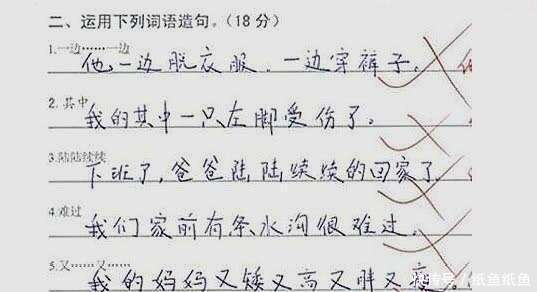 二、运用下列词语造句。(18分)
1.一边……一边
他一边脱衣服，一边穿裤子。
2.其中
我的其中一只左脚受伤了。
3.陆陆续续
下班了，爸爸陆陆续续的回家了。
4.难过
我们家前有条水沟很难过。
5.又……又……
我的妈妈又矮又高又胖又瘦。
搜狐号/纸鱼纸鱼